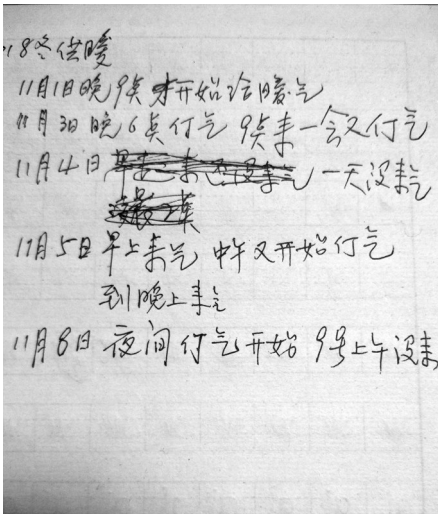 18冬供暖
11月1日晚9点才开始给暖气
11月3日晚6点付气 9点来一会又付气
11月4日 一天没来气
11月5日早上来气 中午又开始付气
到晚上来气
11月8日 夜间付气开始 9号上午没来